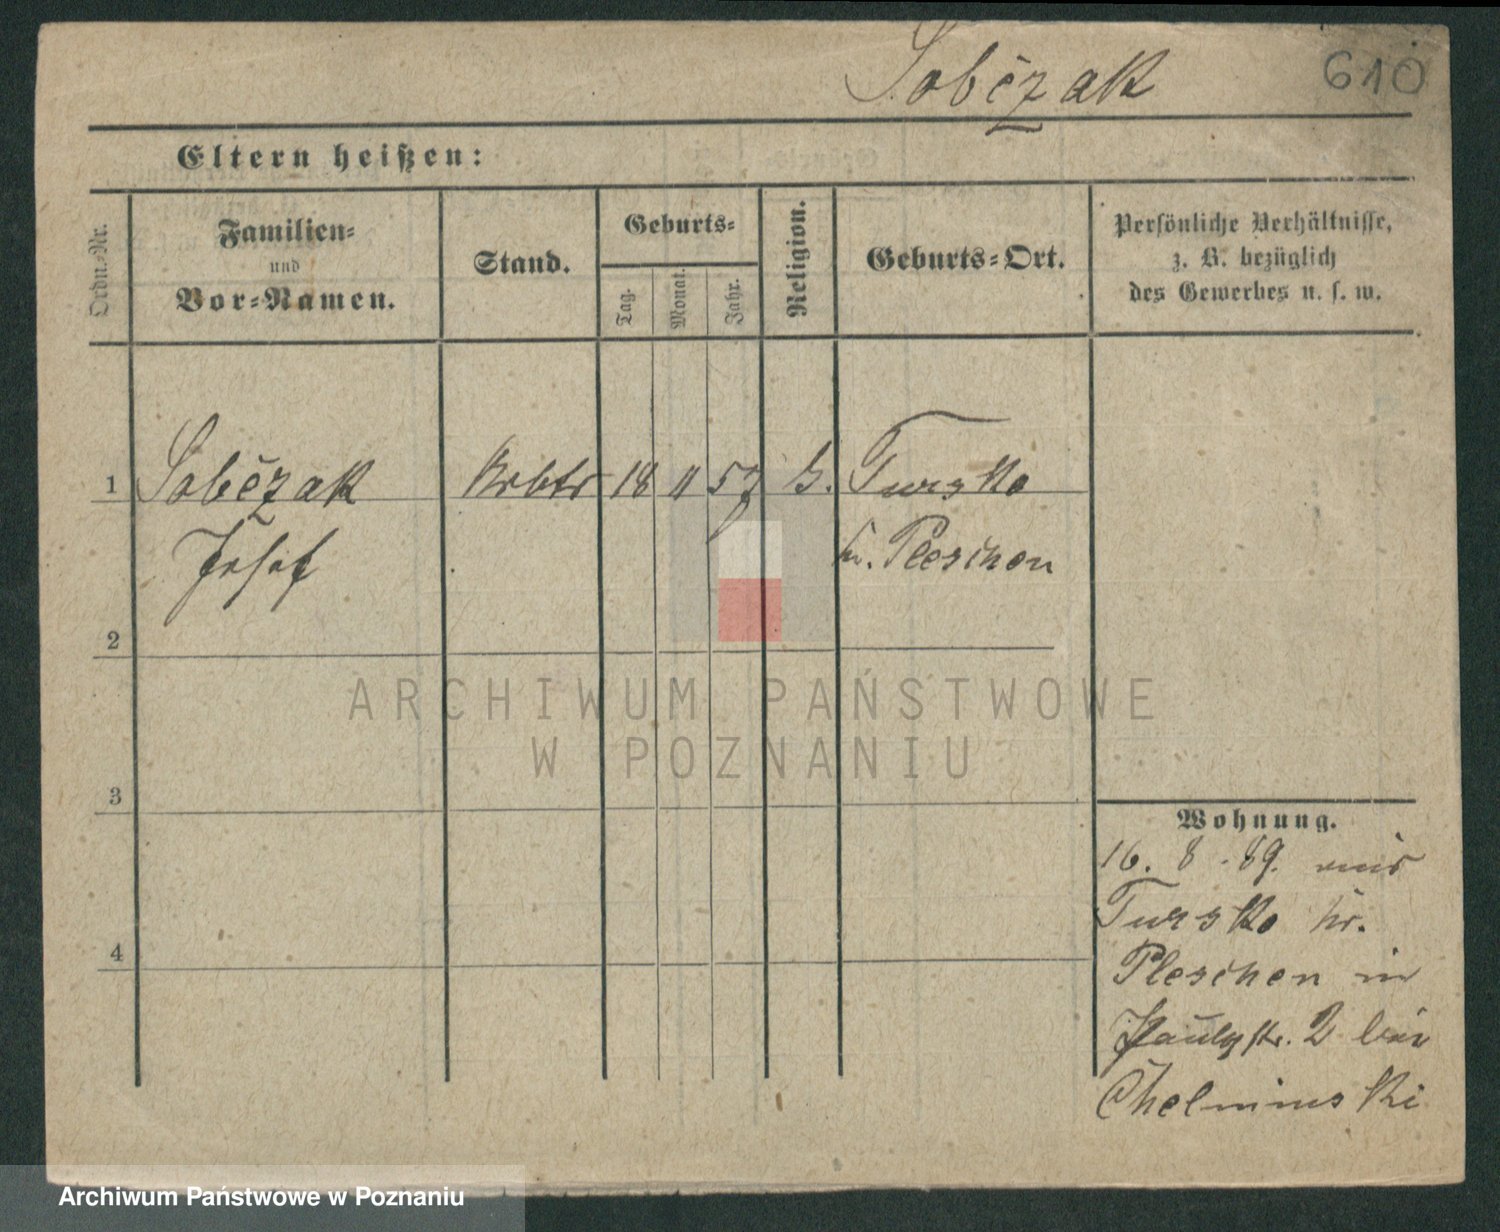 Sobczak 610
Eltern heißen:
Ordn.-Nr.
Familien-
und
Vor-Namen.
Stand.
Geburts-
Tag.
Monat.
Jahr.
Religion.
Geburts-Ort.
Persönliche Verhältnisse,
z. B. bezüglich
des Gewerbes u. s. w.
1 Sobczak Arbtr 18 11 57 k. Tursko
Josef kr. Pleschen
2
ARCHIWUM PAŃSTWOWE
W POZNANIU
3
Wohnung.
16. 8. 89. aus
Tursko kr.
4
Pleschen in
Paulystr. 2 bei
Chelminski
Archiwum Państwowe w Poznaniu